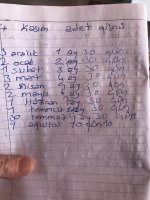 7 Kasım adet günü
3 aralık 1 ay 30 gün
2 ocak 2 ay 30 gün
1 şubat 3 ay 30 gün
3 mart 4 ay 30 gün
2 Nisan 5 ay 30 gün
2 mayıs 6 ay 30 gün
1 Haziran 7 ay 30 gün
1 temmuz 8 ay 30 gün
30 temmuz 9 ay 30 gün
9 ağustos 10 günlü